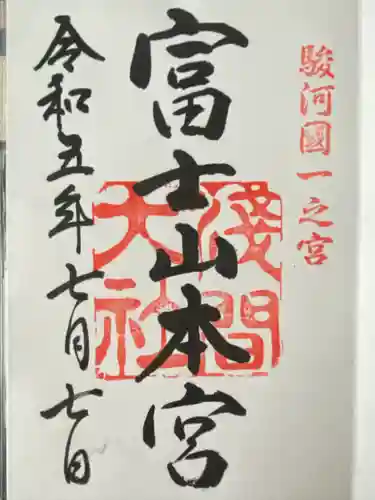 駿河國一之宮
富士山本宮
淺間大社
令和五年七月七日